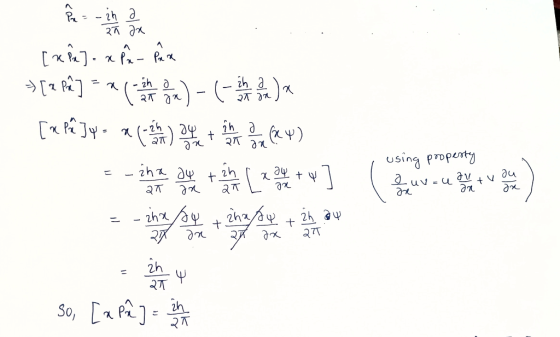 P̂x = -ih/2π ∂/∂x
[x P̂x] = x P̂x - P̂x x
⇒ [x P̂x] = x (-ih/2π ∂/∂x) - (-ih/2π ∂/∂x) x
[x P̂x] ψ = x (-ih/2π) ∂ψ/∂x + ih/2π ∂/∂x (xψ)
= - ihx/2π ∂ψ/∂x + ih/2π [x ∂ψ/∂x + ψ]
(using property
∂/∂x uv = u ∂v/∂x + v ∂u/∂x)
= - ihx/2π ∂ψ/∂x + ihx/2π ∂ψ/∂x + ih/2π ψ
= ih/2π ψ
So, [x P̂x] = ih/2π